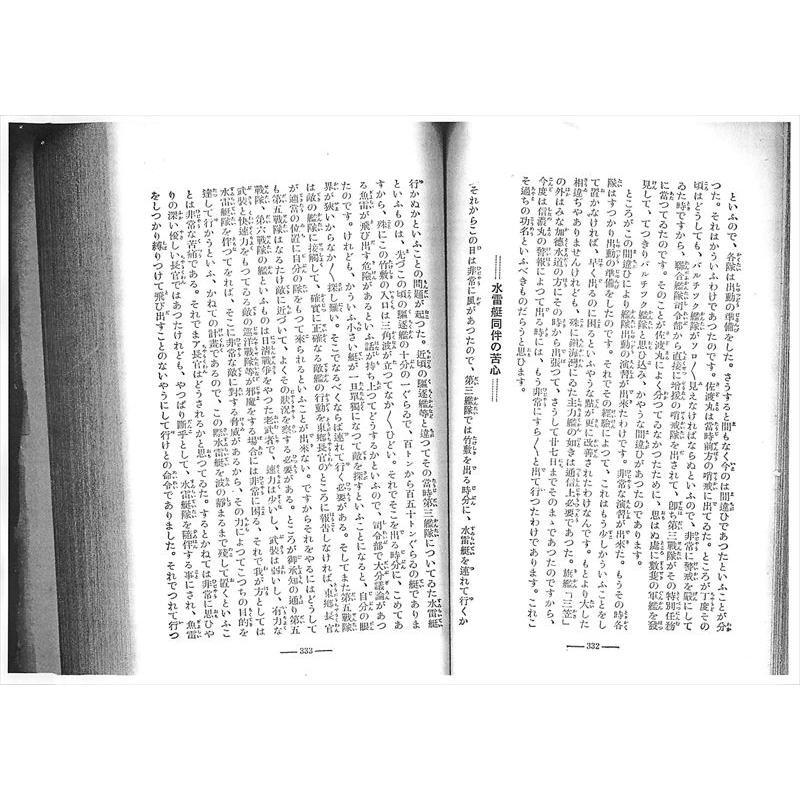 といふので、各隊は出動の準備をした。さうすると間もなく今のは間違ひであつたといふことが分
つた。それはかういふわけであつたのです。佐渡丸は當時前方の哨戒に出てゐた。ところが丁度その
頃はどうしても、バルチツク艦隊がソロ〳〵見えなければならぬといふので、非常に警戒を嚴にして
ゐた時ですから、聯合艦隊司令部から直接に增援の哨戒隊を出されて、卽ち第三戰隊がその特別任務
に當てゐたのです。そのことが佐渡丸によく分つてゐなかつたために、思はぬ處に數隻の軍艦を發
見して、てつきりバルチツク艦隊と思ひ込み、かやうな間違ひがあつたのであります。
ところがこの間違ひにより艦隊出動の演習が出來たわけです。非常な演習が出來た。もうその時各
隊はすつかり出動の準備をしたのです。それでその經驗によつて、これはもう少しかういふことをし
て置かなければ、早く出るのに困るといふやうな點が更に改善されたわけなんです。もとより大した
相違ぢやありませんけれども、殊に鎭海灣にゐた主力艦の如きは通信上必要であつた。旗艦「三笠」
の外はみな加德水道の方にその時から出張つて、さうして廿七日までそのまゝであつたのですから、
今度は信濃丸の警報によつて出る時には、もう非常にすら〳〵と出て行つたわけであります。これこ
そ過ちの功名といふべきものだらうと思ひます。
水雷艇同伴の苦心
それからこの日は非常に風があつたので、第三艦隊では竹敷を出る時分に、水雷艇を連れて行くか
332
行かぬかといふことの問題が起つた。近頃の驅逐艦等と違つてその當時第三艦隊についてゐた水雷艇
といふものは、先づこの頃の驅逐艦の十分の一ぐらゐで、百トンから百五十トンぐらゐの艇でありま
すから、殊にこの竹敷の入口は三角波が立つてなか〳〵ひどい。それでそこを出る時分に、こめてあ
る魚雷が飛び出す危險があるといふ話が持ち上つてどうするかといふので、司令部で大分議論があつ
たのです。けれども、かういふ小さい艇が一旦獨になつて敵を探すといふことになると、自分の眼
界が狹いからなか〳〵探し難い。そこでなるべくならば連れて行く必要がある。そしてまた第五戰隊
は敵の艦隊に接觸して、確實に正確なる敵艦の行動を東鄕長官のところに報告しなければ、東鄕長官
が適當の位置に自分の隊をもつて來られるといふことが出來ない。ですからそれをやるにはどうして
も第五戰隊はなるたけ敵に近づいて、よくその狀況を察する必要がある。ところが御承知の通り第五
戰隊、第六戰隊の艦といふものは日淸戰爭をやつた老武者で、速力は少いし、武裝は弱いし、有力な
武裝と快速力をもつてゐる敵の巡洋戰隊等が邪魔をする場合には非常に困る、それで我が方としては
水雷艇隊を伴つてをれば、そこに非常な敵に對する脅威があるから、その力によつてこつちの目的を
達して行かうといふ、かねての計畫であるので、この際水雷艇を波の靜まるまで殘して置くといふこ
とは非常な苦痛である。それでまア長官はどうされるかと思つてゐた。するとかねては非常に思ひや
りの深い優しい長官ではあつたけれども、やつぱり斷乎として、水雷艇隊を隨伴する事にされ、魚雷
をしつかり縛りつけて飛び出すことのないやうにして行けとの命令でありました。それでつれて行つ
333